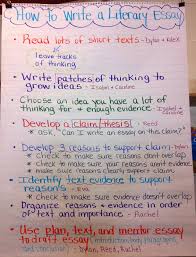 How to Write a Literary Essay
• Read lots of short texts - Dylan + Alex
leave tracks
of thinking
• Write patches of thinking
to grow ideas - Isabel + Caroline
• Choose an idea you have a lot
of thinking for + enough evidence - Isabel + Caroline
• Develop a claim/thesis - Reed
* ASK, "Can I write an essay on this claim?"
• Develop 3 reasons to support claim -
* Check to make sure reasons dont overlap
* check to make sure your reasons arnt exact
* make sure reasons clearly support claim
• Identify text evidence to support
reasons - Eva
* Check to make sure evidence doesnt overlap
• Organize reasons + evidence in order
of text and importance - Rachel
• Use plan, text, and mentor essay
to draft essay (introduction, body paragraphs,
and conclusion)
- Dylan, Reed, Rachel